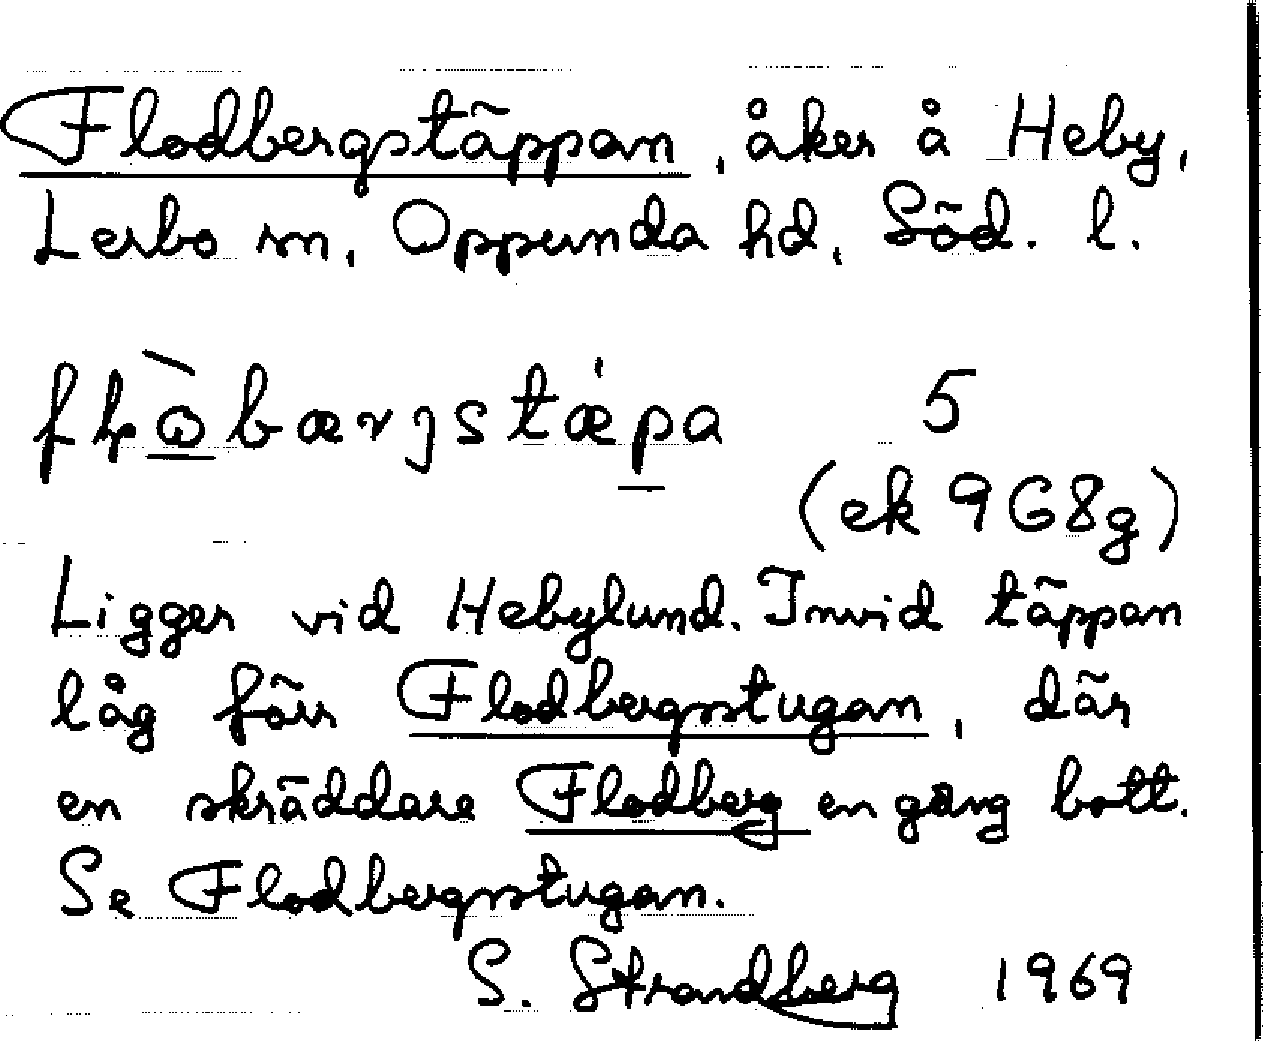 Flodbergstäppan, åker å Heby,
Lerbo sn, Oppunda hd, Söd. l.
5
(ek 968g)
Ligger vid Hebylund. Invid täppan
låg förr Flodbergsstugan, där
en skräddare Flodberg en gång bott.
Se Flodbergsstugan.
S. Strandberg 1969